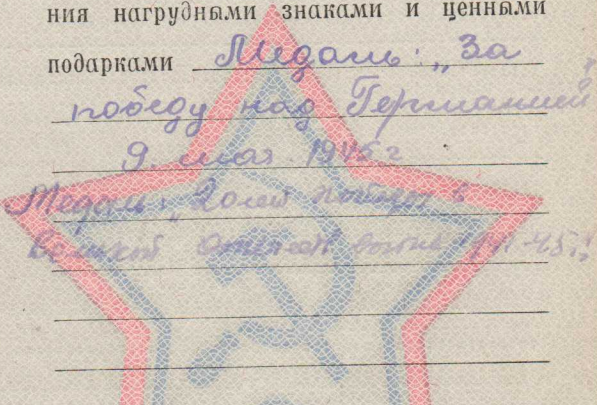 ния нагрудными знаками и ценными
подарками Медаль: „За
победу над Германией"
9. мая 1945 г
Медаль: „20 лет победы в
Великой Отечест войне 1941-45г."